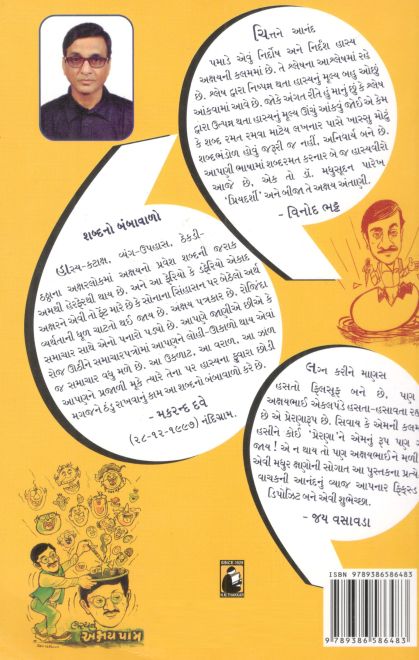 ચિત્તને આનંદ
પમાડે એવું નિર્દોષ અને નિર્દંશ હાસ્ય
અક્ષયની કલમમાં છે. તે શ્લેષના આશ્લેષમાં રહે
છે. શ્લેષ દ્વારા નિષ્પન્ન થતા હાસ્યનું મૂલ્ય બહુ ઓછું
આંકવામાં આવે છે. જોકે અંગત રીતે હું માનું છું કે શ્લેષ
દ્વારા ઉત્પન્ન થતા હાસ્યનું મૂલ્ય ઊંચું આંકવું જોઈએ કેમ
કે શબ્દ રમત રમવા માટેય લખનાર પાસે ખાસ્સુ મોટું
શબ્દભંડોળ હોવું જરૂરી જ નહીં, અનિવાર્ય બને છે.
આપણી ભાષામાં શબ્દરમત કરનાર બે જ હાસ્યવીરો
આજે છે. એક તો ડૉ. મધુસૂદન પારેખ
'પ્રિયદર્શી' અને બીજા તે અક્ષય અંતાણી.
- વિનોદ ભટ્ટ
શબ્દનો બંબાવાળો
હાસ્ય-કટાક્ષ, વ્યંગ-ઉપહાસ, ઠેકડી-
ઠઠ્ઠાના અક્ષરલોકમાં અક્ષયનો પ્રવેશ શબ્દની જરાક
અમથી હેરફેરથી થાય છે. અને આ ફૂંદિયો કે ફંફેરિયો એકાદ
અક્ષરને એવી તો ફૂંટ મારે છે કે સોનાના સિંહાસન પર બેઠેલો અર્થ
વ્યર્થતાની ધૂળ ચાટતો થઈ જાય છે. અક્ષય પત્રકાર છે. રોજિંદા
સમાચાર સાથે એનો પનારો પડ્યો છે. આપણે જાણીએ છીએ કે
રોજ ઊઠીને સમાચારપત્રોમાં આપણને લોહી-ઉકાળો થાય એવાં
જ સમાચાર વધુ મળે છે. આ ઉકળાટ, આ વરાળ, આ ઝાળ
આપણને પ્રજાળી મૂકે ત્યારે તેના પર હાસ્યના ફુવારા છોડી
મગજને ઠંડુ રાખવાનું કામ આ શબ્દનો બંબાવાળો કરે છે.
- મકરન્દ દવે
(૨૮-૧૨-૧૯૯૭) નંદિગ્રામ.
લગ્ન કરીને માણસ
હસતો ફિલસૂફ બને છે. પણ
અક્ષયભાઈ એકલપંડે હસતા-હસાવતા રહ્યા
છે એ પ્રેરણારૂપ છે. સિવાય કે એમની કલમ
હસીને કોઈ 'પ્રેરણા'ને એમનું રૂપ પણ
જાય! એ ન થાય તો પણ અક્ષયભાઈને મળી
એવી મધુર ક્ષણોની સોગાત આ પુસ્તકના પ્રત્યે
વાચકની આનંદનું વ્યાજ આપનાર ફિક્સ
ડિપોઝિટ બને એવી શુભેચ્છા.
- જય વસાવડા
હાસ્યનું
અક્ષયપાત્ર
SINCE 1926
R.R.THAKKAR
ISBN 9789386586483
9 789386 586483